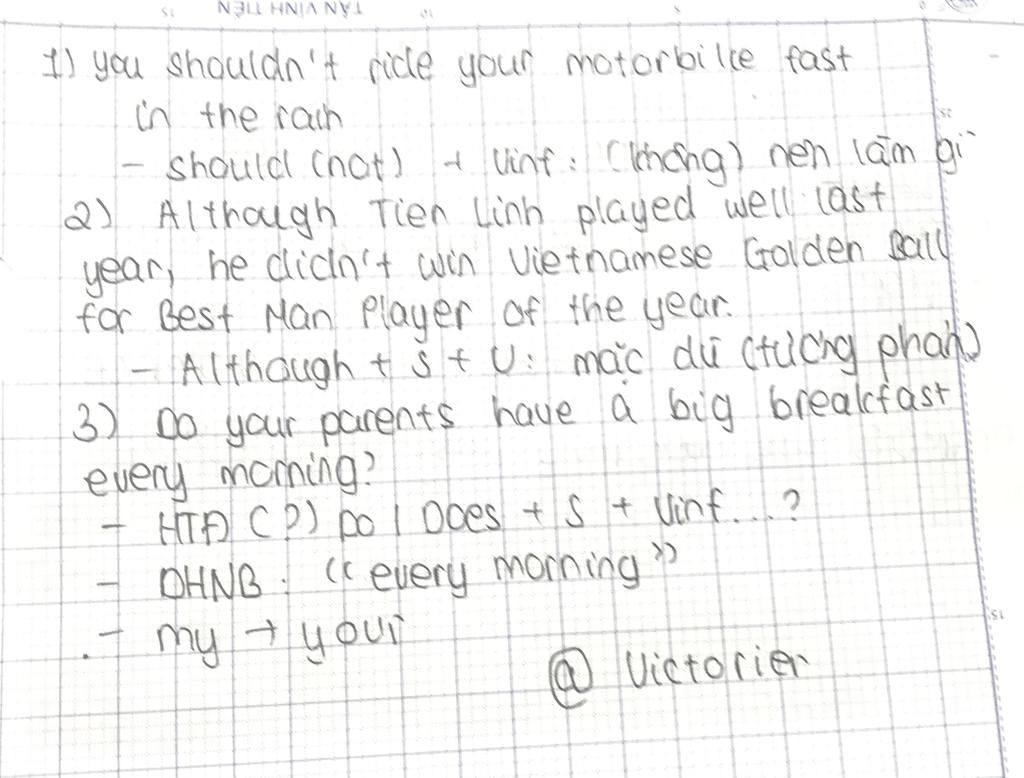 TÂN VĨNH TIẾN
1) you shouldn't ride your motorbike fast
in the rain
- should (not) + Vinf : (không) nên làm gì
2) Although Tien Linh played well last
year, he didn't win Vietnamese Golden Ball
for Best Man Player of the year.
- Although + S + V: mặc dù (tương phản)
3) Do your parents have a big breakfast
every morning?
- HTĐ (?) Do / Does + S + Vinf...?
- DHNB : "every morning"
- my → your
@ Victorier